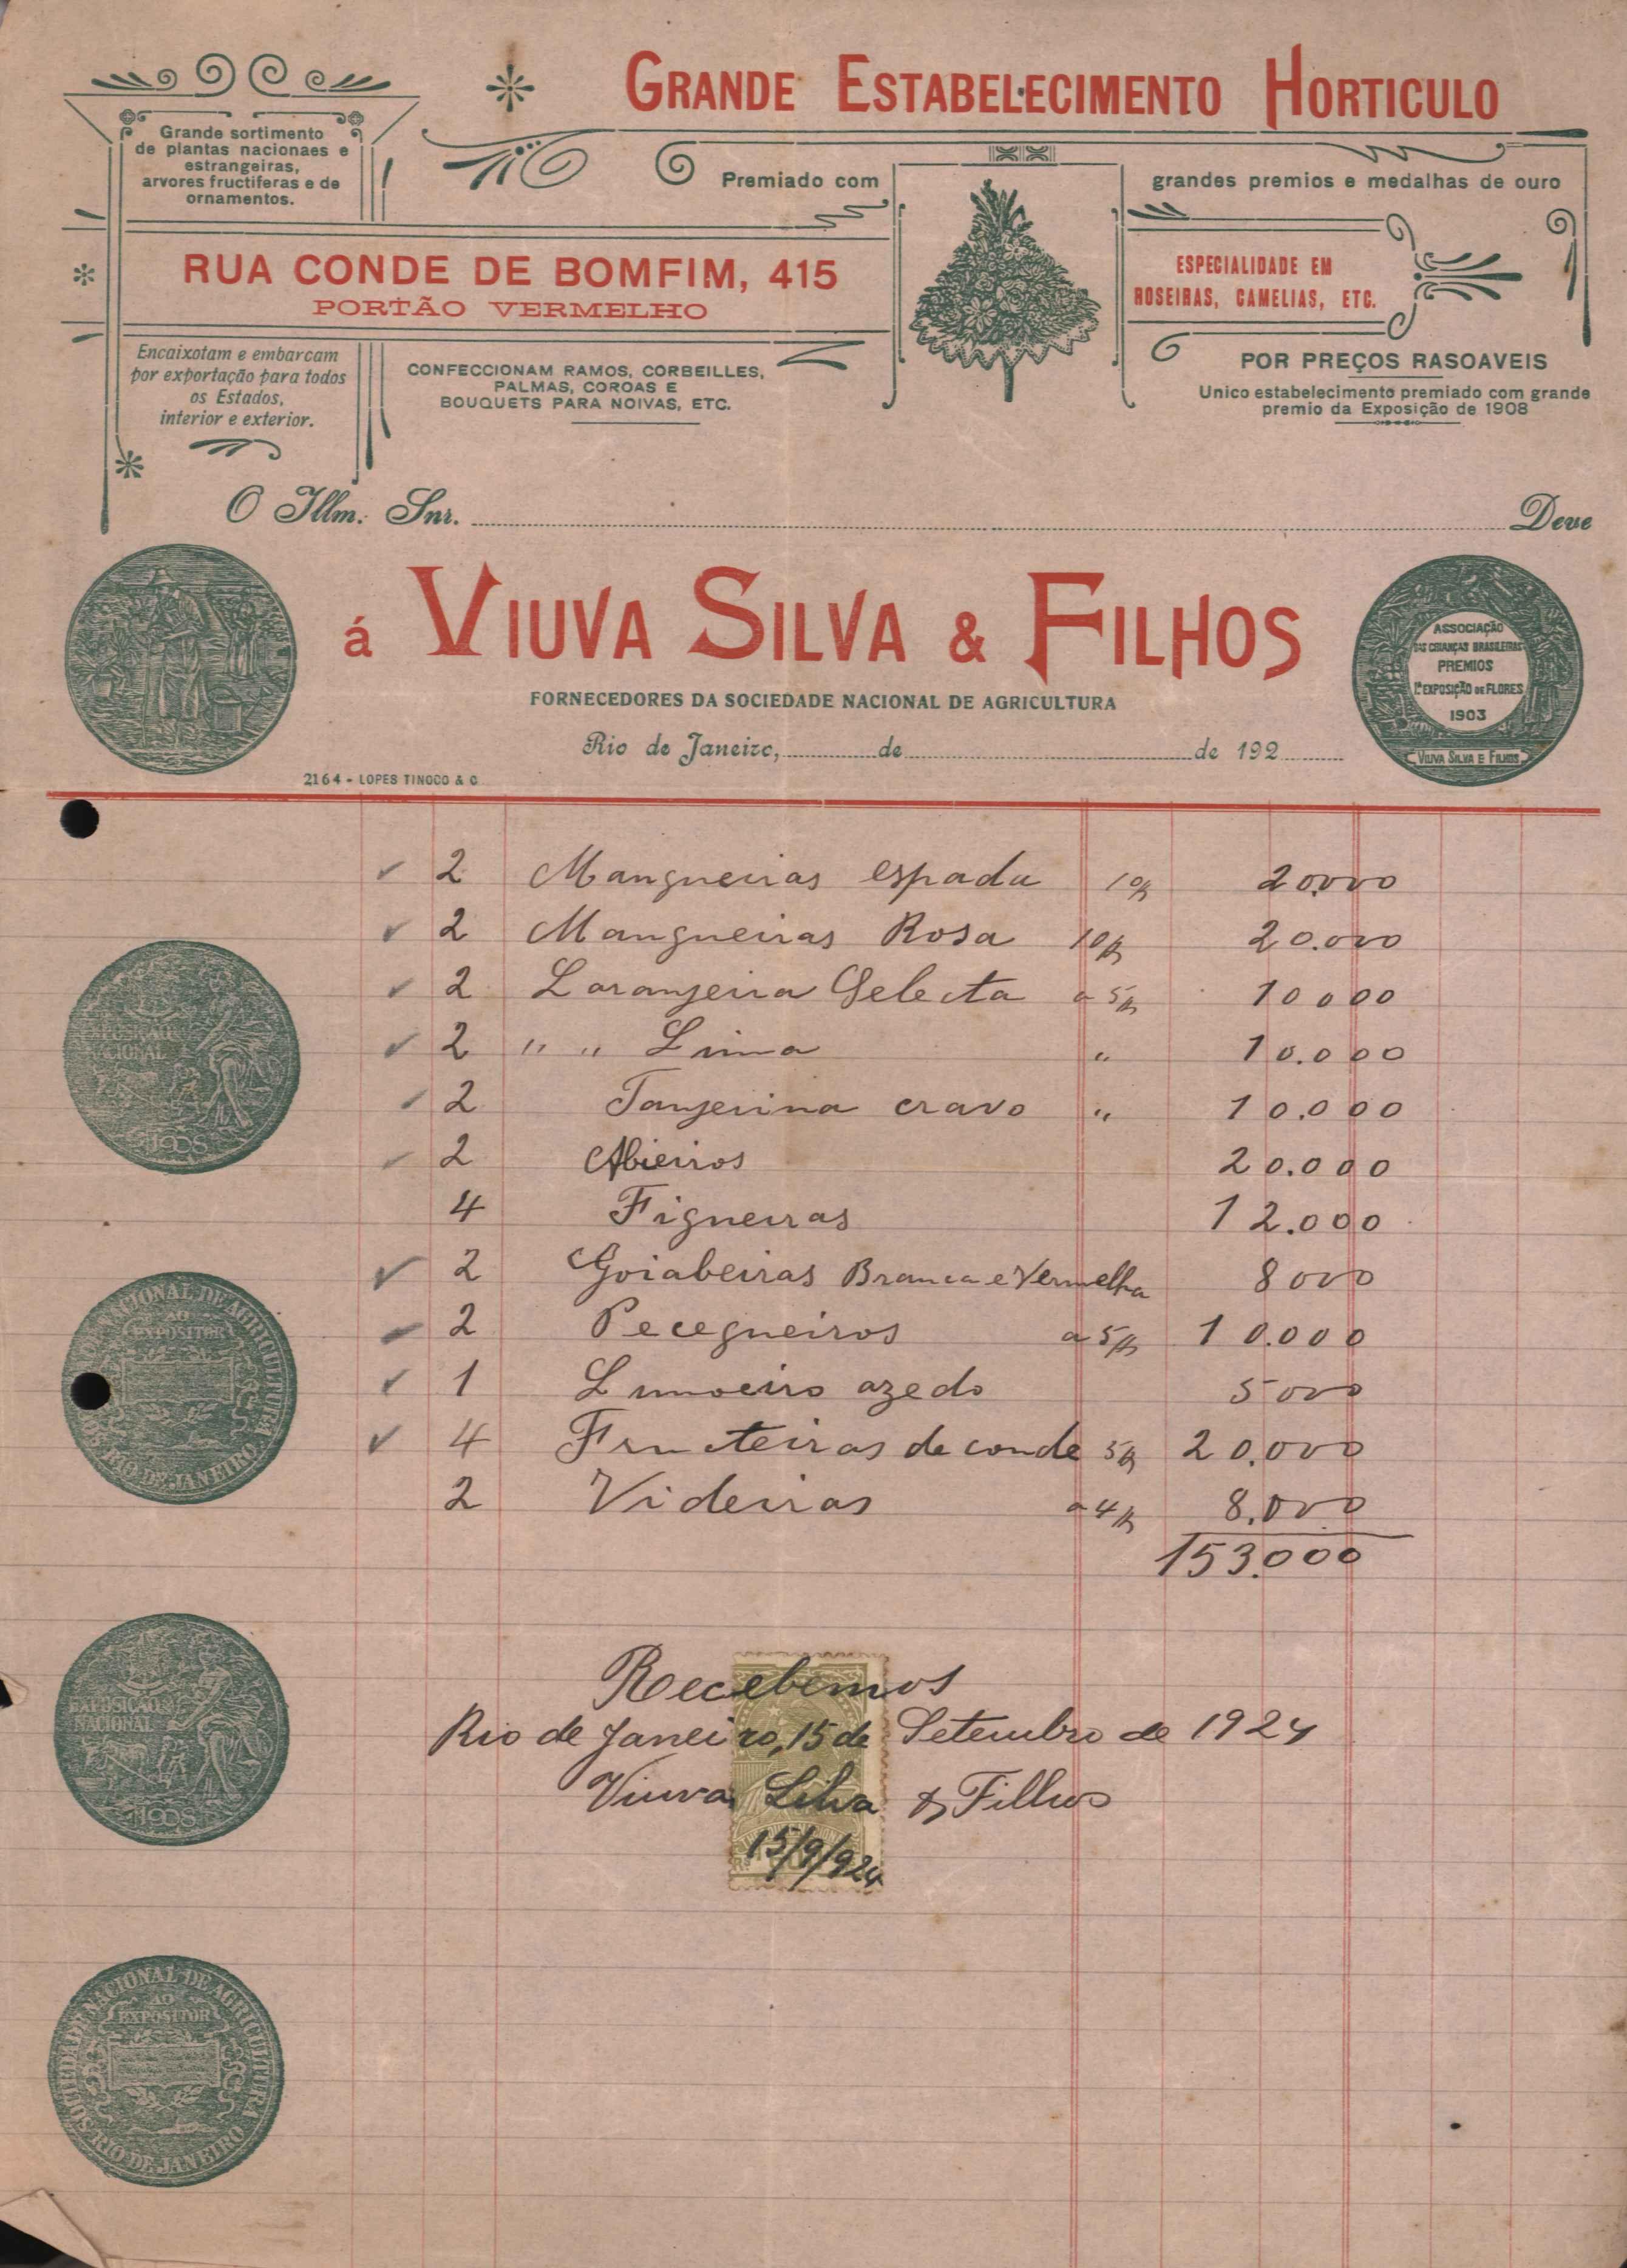 GRANDE ESTABELECIMENTO HORTICULO
Grande sortimento
de plantas nacionaes e
estrangeiras,
arvores fructiferas e de
ornamentos.
Premiado com
grandes premios e medalhas de ouro
RUA CONDE DE BOMFIM, 415
PORTÃO VERMELHO
ESPECIALIDADE EM
ROSEIRAS, CAMELIAS, ETC.
Encaixotam e embarcam
por exportação para todos
os Estados,
interior e exterior.
CONFECCIONAM RAMOS, CORBEILLES,
PALMAS, COROAS E
BOUQUETS PARA NOIVAS, ETC.
POR PREÇOS RASOAVEIS
Unico estabelecimento premiado com grande
premio da Exposição de 1908
O Illm. Snr. Deve
á VIUVA SILVA & FILHOS
FORNECEDORES DA SOCIEDADE NACIONAL DE AGRICULTURA
Rio de Janeiro, de de 192
2164 - LOPES TINOCO & C
ASSOCIAÇÃO
DAS CRIANÇAS BRASILEIRAS
PREMIOS
1ª EXPOSIÇÃO DE FLORES
1903
VIUVA SILVA E FILHOS
2 Mangueiras espada 10$ 20.000
2 Mangueiras Rosa 10$ 20.000
2 Laranjeira Selecta a 5$ 10000
2 " " Lima " 10.000
2 Tangerina cravo " 10.000
2 Abieiros 20.000
4 Figueiras 12.000
2 Goiabeiras Branca e Vermelha 8000
2 Pecegueiros a 5$ 10.000
1 Limoeiro azedo 5000
4 Fructeiras de conde 5$ 20.000
2 Videiras a 4$ 8.000
153.000
Recebemos
Rio de Janeiro, 15 de Setembro de 1924
Viuva Silva & Filhos
15/9/924
EXPOSIÇÃO
NACIONAL
1908
SOCIEDADE NACIONAL DE AGRICULTURA
AO
EXPOSITOR
RIO DE JANEIRO
EXPOSIÇÃO
NACIONAL
1908
SOCIEDADE NACIONAL DE AGRICULTURA
AO
EXPOSITOR
RIO DE JANEIRO